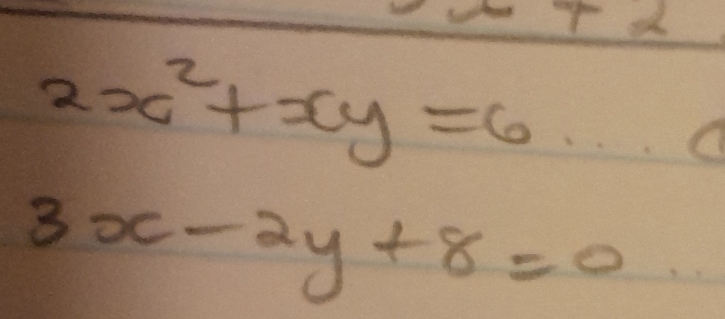 x + 2
2x² + xy = 6 .... (
3x - 2y + 8 = 0 ..